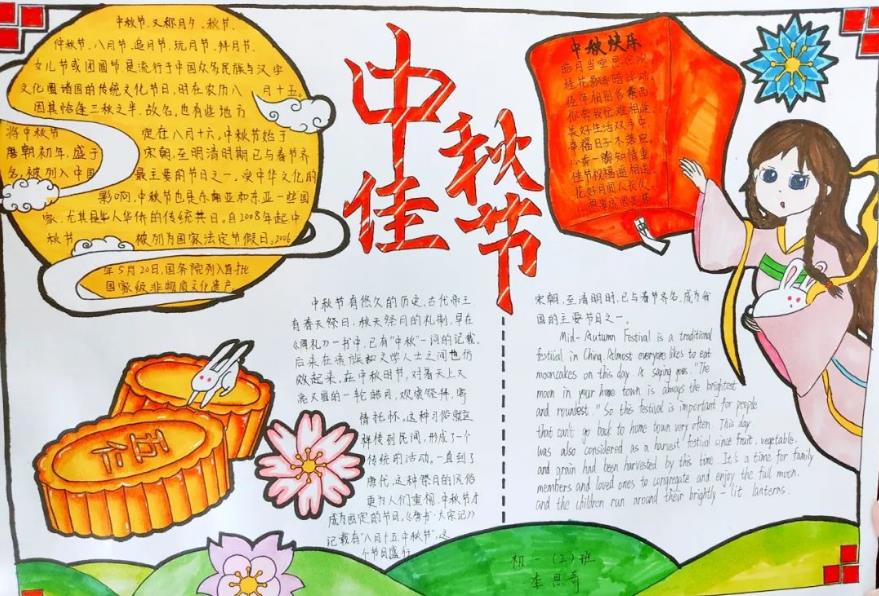 中秋佳节
中秋节,又称月夕、秋节、
仲秋节、八月节、追月节、玩月节、拜月节、
女儿节或团圆节,是流行于中国众多民族与汉字
文化圈诸国的传统文化节日,时在农历八月十五。
因其恰逢三秋之半,故名,也有些地方
将中秋节定在八月十六。中秋节始于
唐朝初年,盛于宋朝,至明清时期已与春节齐
名,被列入中国最主要的节日之一。受中华文化的
影响,中秋节也是东南亚和东亚一些国
家,尤其是华人华侨的传统共日,自2008年起中
秋节被列为国家法定节假日,2006
年5月20日,国务院列入首批
国家级非物质文化遗产
中秋快乐
五仁
中秋节有悠久的历史,古代帝王
有春天祭日,秋天祭月的礼制,早在
《周礼》一书中,已有“中秋”一词的记载。
后来贵族和文学人士之间也仿
效起来,在中秋时节,对着天上又
亮又圆的一轮皓月,观赏祭拜,寄
情托怀,这种习俗就这
样传到民间,形成了一个
传统的活动。一直到了
唐代,这种祭月的风俗
更为人们重视,中秋节才
成为固定的节日,《唐书·太宗记》
记载有“八月十五中秋节”,这
个节日盛行
宋朝,至清明时,已与春节齐名,成为我
国的主要节日之一。
Mid-Autumn Festival is a traditional
festival in China, Almost everyone likes to eat
mooncakes on this day. Is saying goes, "The
moon in your home town is always the brightest
and roundest." So this festival is important for people
that can't go back to home town very often. This day
was also considered as a harvest festival since fruit, vegetable.
and grain had been harvested by this time. It's a time for family
members and loved ones to congregate and enjoy the full moon.
and the children run around their brightly-lit lanterns.
初一(2)班
李思奇